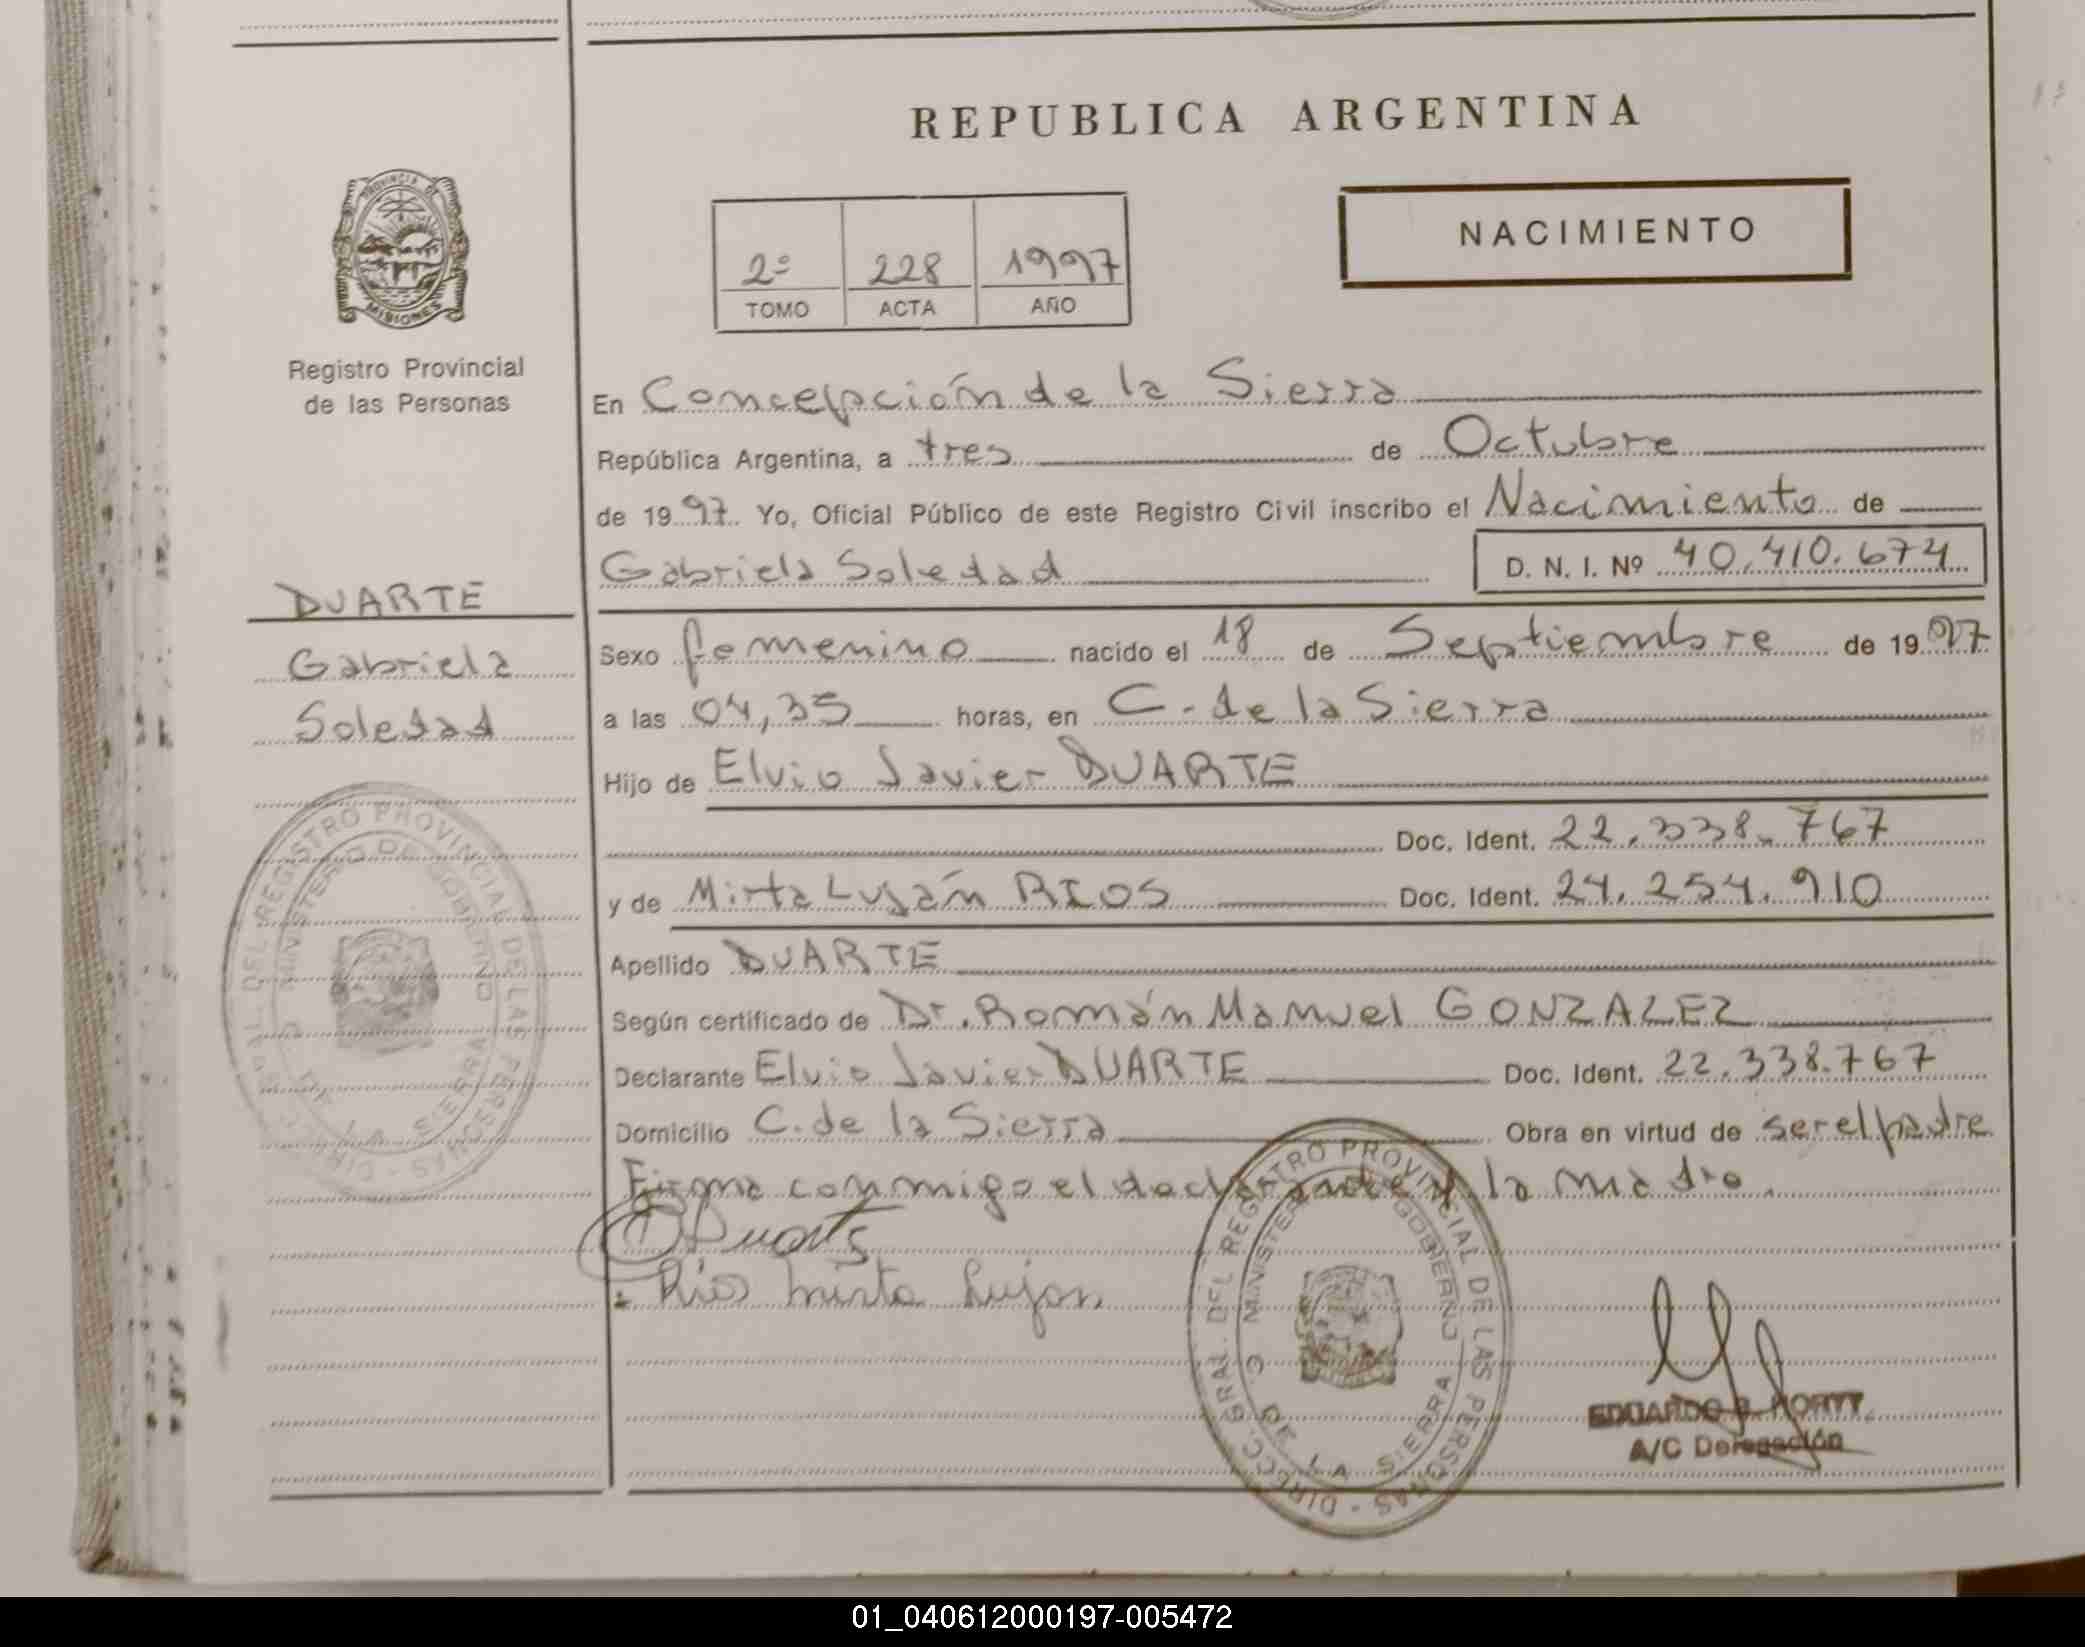 REPUBLICA ARGENTINA
PROVINCIA DE MISIONES
Registro Provincial
de las Personas
2º 228 1997
TOMO ACTA AÑO
NACIMIENTO
DUARTE
Gabriela
Soledad
En Concepción de la Sierra
República Argentina, a tres de Octubre
de 1997. Yo, Oficial Público de este Registro Civil inscribo el Nacimiento de
Gabriela Soledad D. N. I. Nº 40.410.674
Sexo femenino nacido el 18 de Septiembre de 1997
a las 04,35 horas, en C. de la Sierra
Hijo de Elvio Javier DUARTE
Doc. Ident. 22.338.767
y de Mirta Luján RIOS Doc. Ident. 24.254.910
Apellido DUARTE
Según certificado de Dr. Román Manuel GONZALEZ
Declarante Elvio Javier DUARTE Doc. Ident. 22.338.767
Domicilio C. de la Sierra Obra en virtud de ser el padre
Firma conmigo el declarante y la madre.
Duarte
Rios Mirta Lujan
DIRECC. GRAL. DEL REGISTRO PROVINCIAL DE LAS PERSONAS
MINISTERIO DE GOBIERNO
C. DE LA SIERRA
DIRECC. GRAL. DEL REGISTRO PROVINCIAL DE LAS PERSONAS
MINISTERIO GOBIERNO
C. DE LA SIERRA
EDUARDO
A/C Delegación
01_040612000197-005472